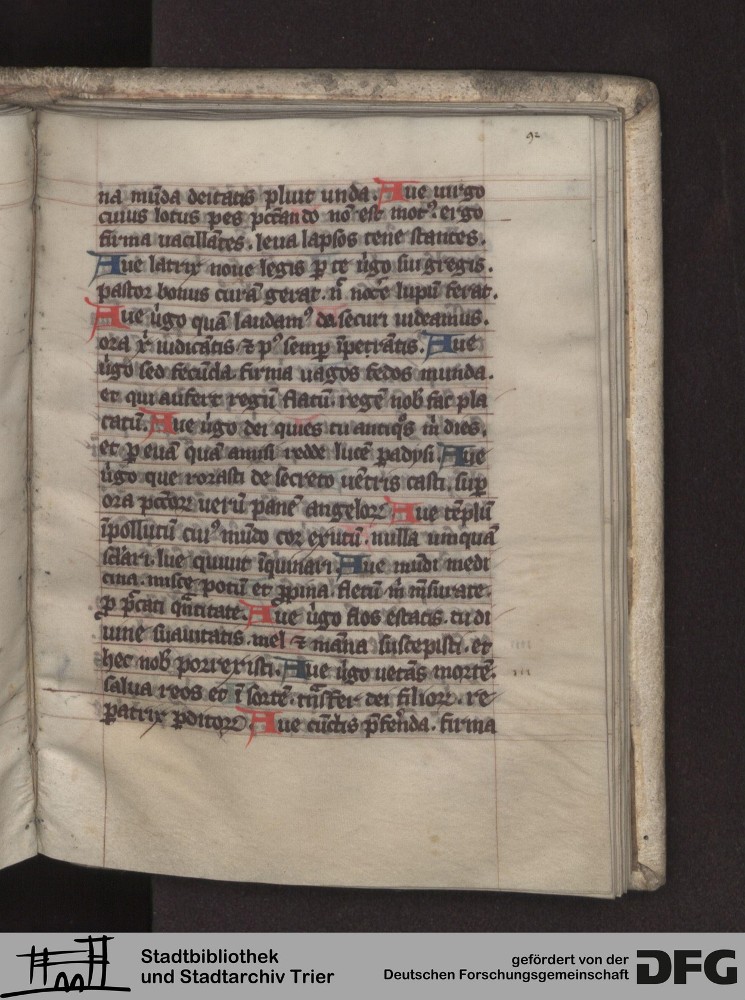 92
na mu̅da deitatis pluit unda. Aue uirgo
cuius lotus pes pcc̅ando no̅ est mot⁹. ergo
firma uacilla̅tes. leua lapsos tene stantes.
Aue latrix noue legis p te u̍go sui gregis.
pastor bonus cura̅ gerat. n̅ noce̅ lupu̅ ferat.
Aue u̍go qua̅ laudam⁹ da securi uideamus.
ora iudicantis ⁊ p⁹ semp i̅petrantis. Aue
u̍go sed fecu̅da. firma uagos fedos munda.
et qui aufert regu̅ flatu̅. rege̅ nob fac pla
catu̅. Aue u̍go dei quies tu antiq̊s in̅ dies.
et p eua̅ qua̅ amisi redde luce̅ padysi. Aue
u̍go que rorasti de secreto ue̅tris casti. sup
ora pcc̅oꝝ ueru̅ pane̅ angeloꝝ Aue te̅plu̅
i̅pollutu̅ cui⁹ mu̅do cor exutu̅. nulla umqua̅
lue quiuit i̅quinari. Aue mu̅di medi
cina. misce potu̅ et ꝓpina. fletu̅ m̅ m̅surate.
p pc̅cati qn̅titate. Aue u̍go flos estatis. tu di
uine suauitatis. mel ⁊ ma̅na suscepisti. et
hec nob porrexisti. Aue u̍go ueta̅s morte̅.
salua reos et i̅ sorte̅. tn̅sfer dei filioꝝ. re
patrix pditoꝝ. Aue cu̅ctis p̅fere̅da. firma
Stadtbibliothek
und Stadtarchiv Trier
gefördert von der
Deutschen Forschungsgemeinschaft
DFG